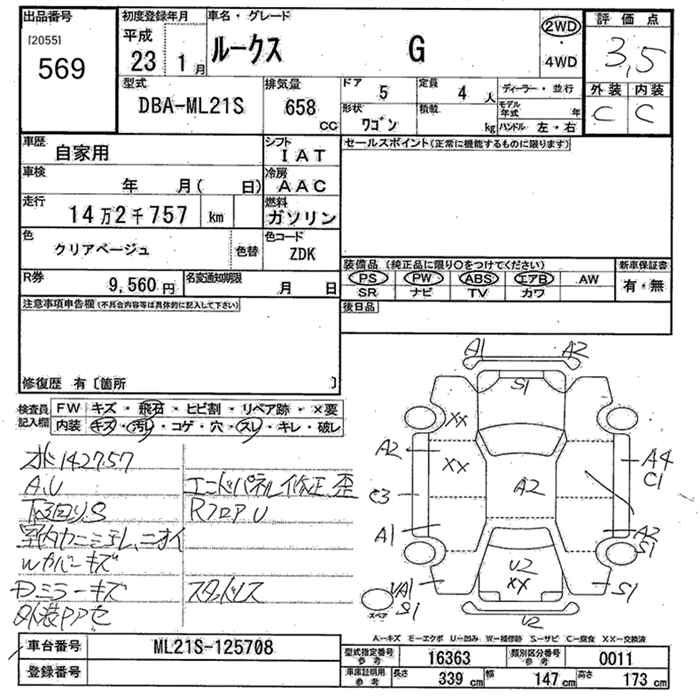 出品番号
[2055]
569
初度登録年月
平成
23 1月
車名・グレード
ルークス G
2WD
・
4WD
評価点
3,5
外装 内装
C C
型式
DBA-ML21S
排気量
658
CC
ドア
5
定員
4人
形状
ワゴン
積載
kg
ディーラー・並行
モデル年式 年
ハンドル 左・右
車歴
自家用
シフト
IAT
車検
年 月( 日)
冷房
AAC
走行
14万2千757 km
燃料
ガソリン
色
クリアベージュ
色替
色コード
ZDK
R券
9,560円
名変通知期限
月 日
セールスポイント(正常に機能するものに限ります)
装備品(純正品に限り○をつけてください)
PS PW ABS エアB AW
SR ナビ TV カワ
新車保証書
有・無
後日品
注意事項申告欄(不具合内容等は具体的に記入して下さい)
修復歴 有〔箇所 〕
検査員記入欄
FW キズ・飛石・ヒビ割・リペア跡・×要
内装 キズ・汚レ・コゲ・穴・スレ・キレ・破レ
142757
A.U
エンドパネル修正歪
下回りS
RフロアU
Wカバーキズ
ミラーキズ
外装PP
A1 A2
S1
XX
A2
XX
A2
A4
C1
C3
A1
A2
S1
U2
XX
S1
S1
スペア
U2
A-キズ E-エクボ U-凹み W-補修跡 S-サビ C-腐食 XX-交換済
車台番号
ML21S-125708
登録番号
型式指定番号 参考
16363
類別区分番号 参考
0011
車庫証明用 参考
長さ 339 cm 幅 147 cm 高さ 173 cm